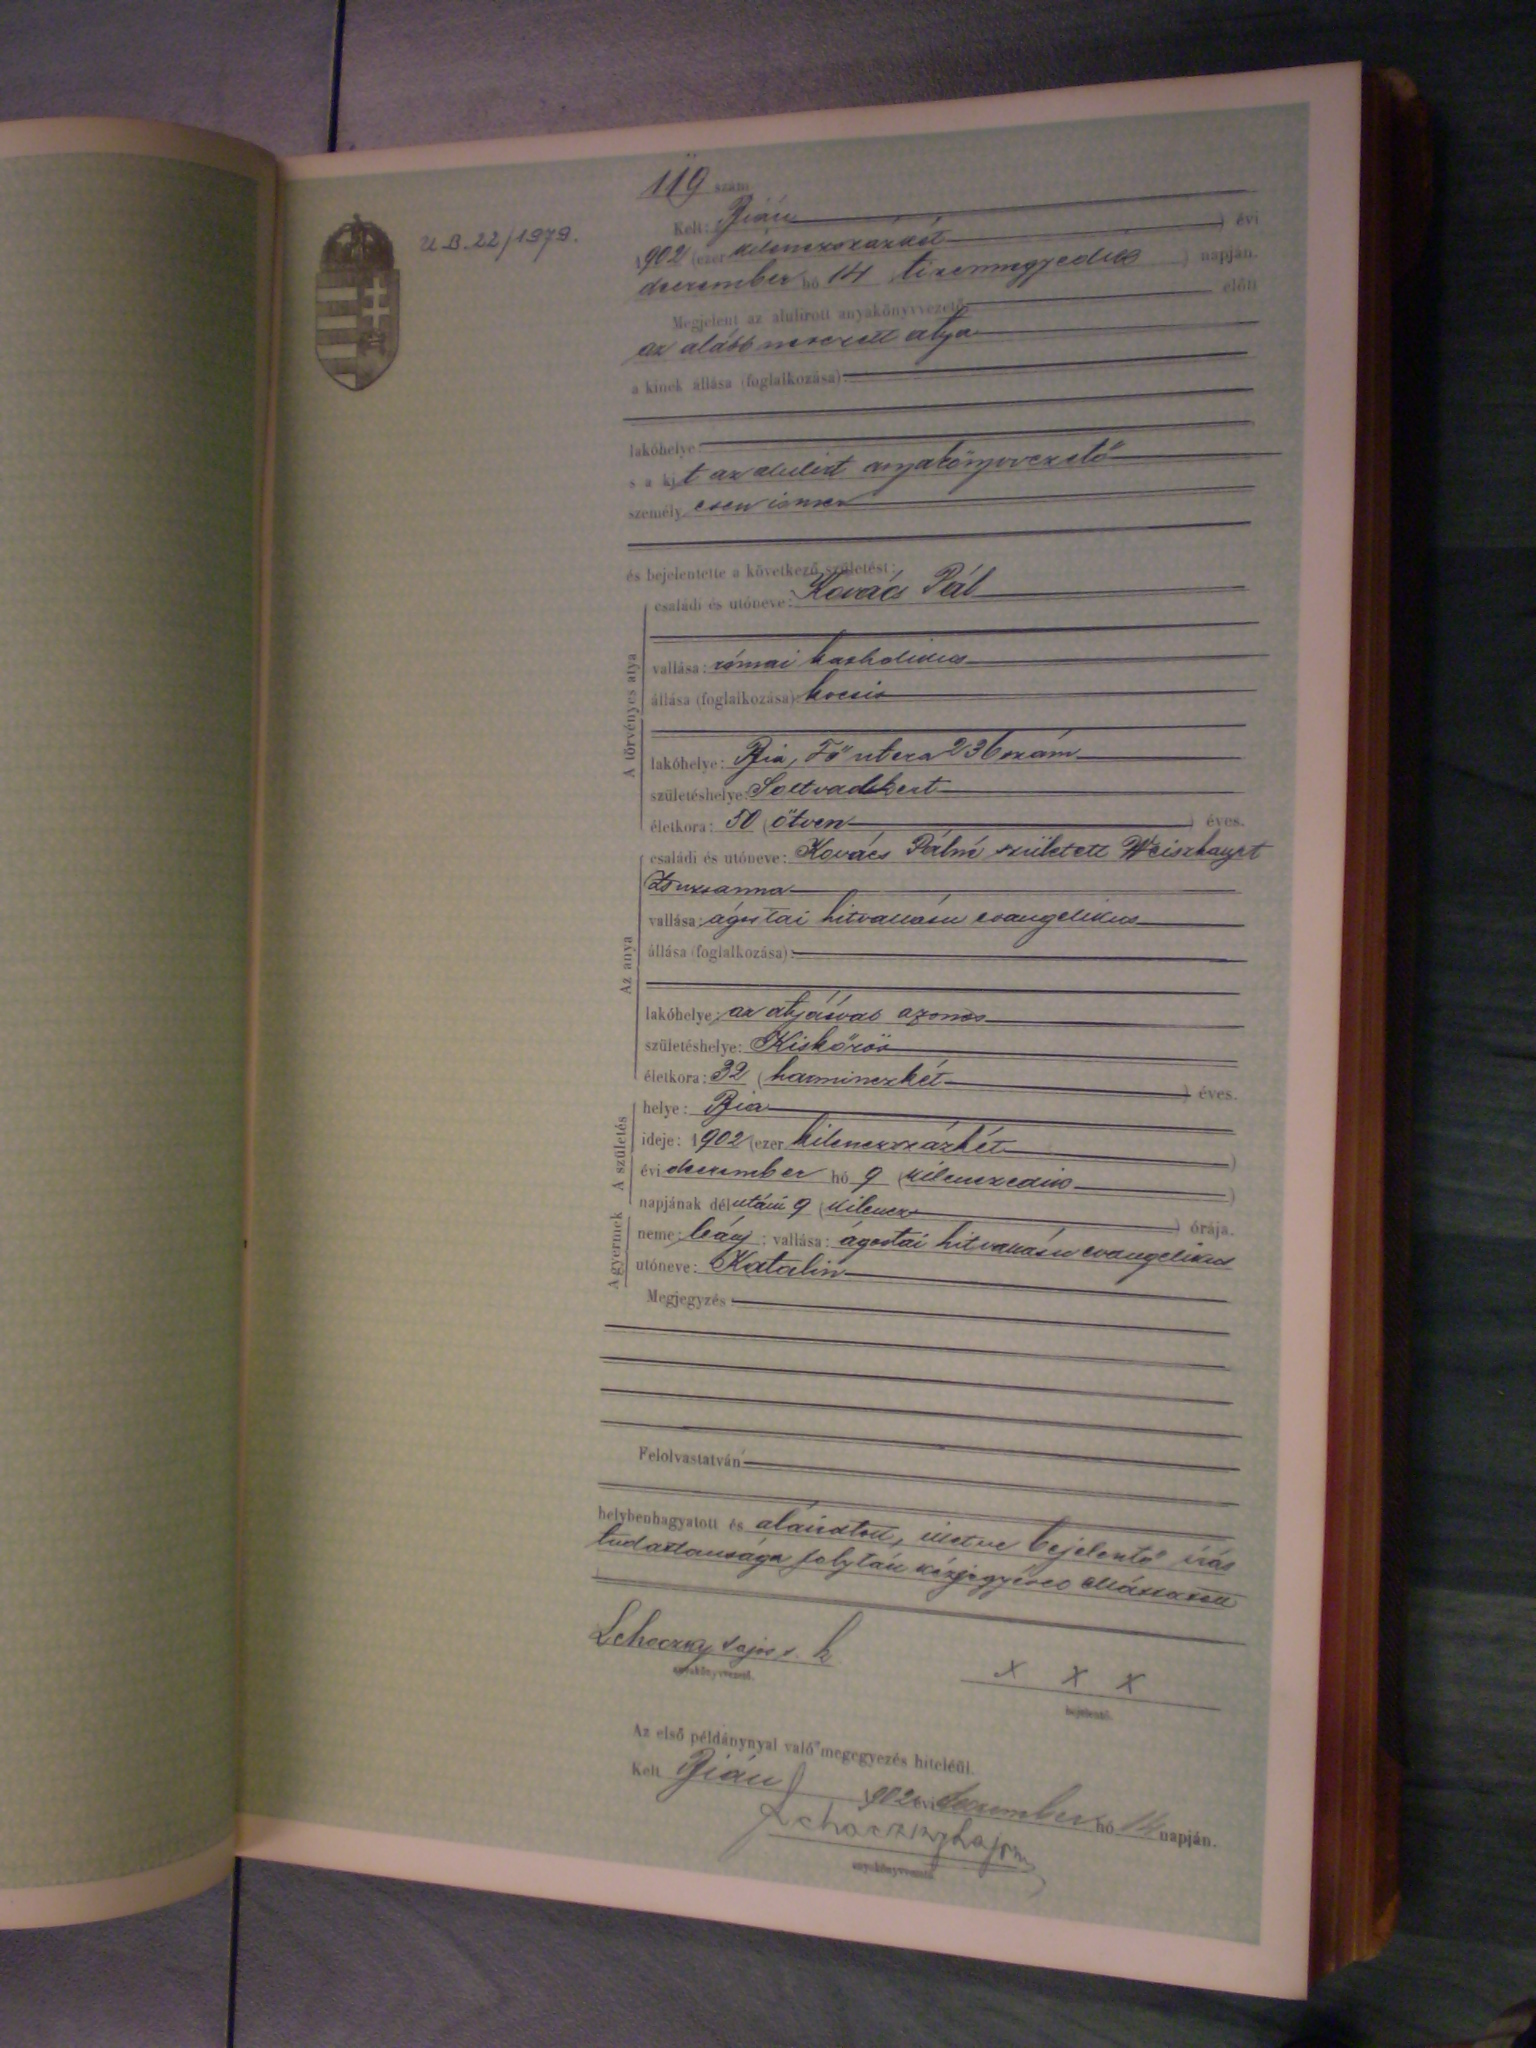 U. B. 22/1979.
119 szám
Kelt: Bián évi
1902 (ezer kilenczszázkét
deczember hó 14 tizennegyedik) napján.
Megjelent az alulirott anyakönyvvezető előtt
az alább nevezett atya
a kinek állása (foglalkozása):
lakóhelye
s a kit az alulírt anyakönyvvezető
személyesen ismer
és bejelentette a következő születést:
A törvényes atya
családi és utóneve: Kovács Pál
vallása: római katholikus
állása (foglalkozása): kocsis
lakóhelye: Bia, Fő utcza 236 szám
születéshelye: Soltvadkert
életkora: 50 (ötven) éves.
Az anya
családi és utóneve: Kovács Pálné született Weiszhaupt
Zsuzsanna
vallása: ágostai hitvallásu evangelikus
állása (foglalkozása):
lakóhelye: az atyáéval azonos
születéshelye: Kiskőrös
életkora: 32 (harminczkét) éves.
A születés
helye: Bia
ideje: 1902 (ezer kilenczszázkét)
évi deczember hó 9 (kilenczedik)
napjának délutáni 9 (kilencz) órája.
A gyermek
neme: leány; vallása: ágostai hitvallásu evangelikus
utóneve: Katalin
Megjegyzés:
Felolvastatván
helybenhagyatott és aláiratott, illetve bejelentő írás
tudatlansága folytán kézjegyével elláttatott
Lehoczky Lajos s. k
anyakönyvvezető.
x x x
bejelentő.
Az első példánynyal való megegyezés hiteléül.
Kelt Bián 1902 évi deczember hó 14 napján.
Lehoczky Lajos
anyakönyvvezető.